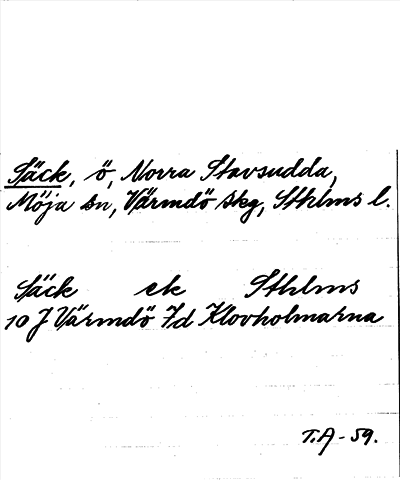 Säck, ö, Norra Stavsudda,
Möja sn, Värmdö skg, Sthlms l.
Säck ek Sthlms
10 J Värmdö 7d Klovholmarna
T.A-59.